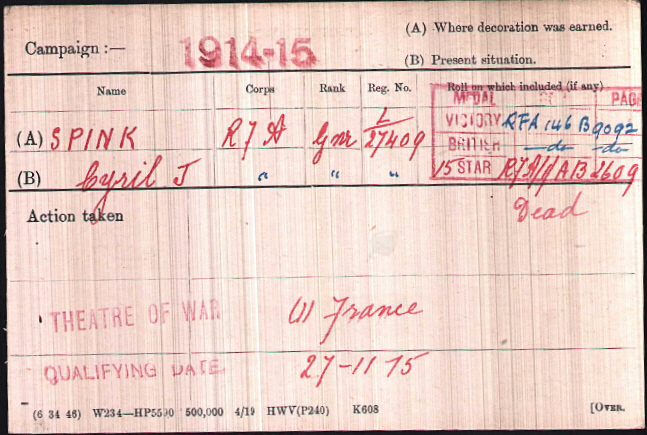 (A) Where decoration was earned.
Campaign :— 1914-15
(B) Present situation.
Name Corps Rank Reg. No. Roll on which included (if any)
MEDAL PAGE
(A) SPINK R F A Gnr L/27409 VICTORY RFA 146 B 9092
BRITISH —do— —do—
(B) Cyril J " " " 15 STAR RFA/ AB 2609
Action taken Dead
THEATRE OF WAR (1) France
QUALIFYING DATE 27-11-15
(6 34 46) W234—HP5590 500,000 4/19 HWV(P240) K608 [OVER.